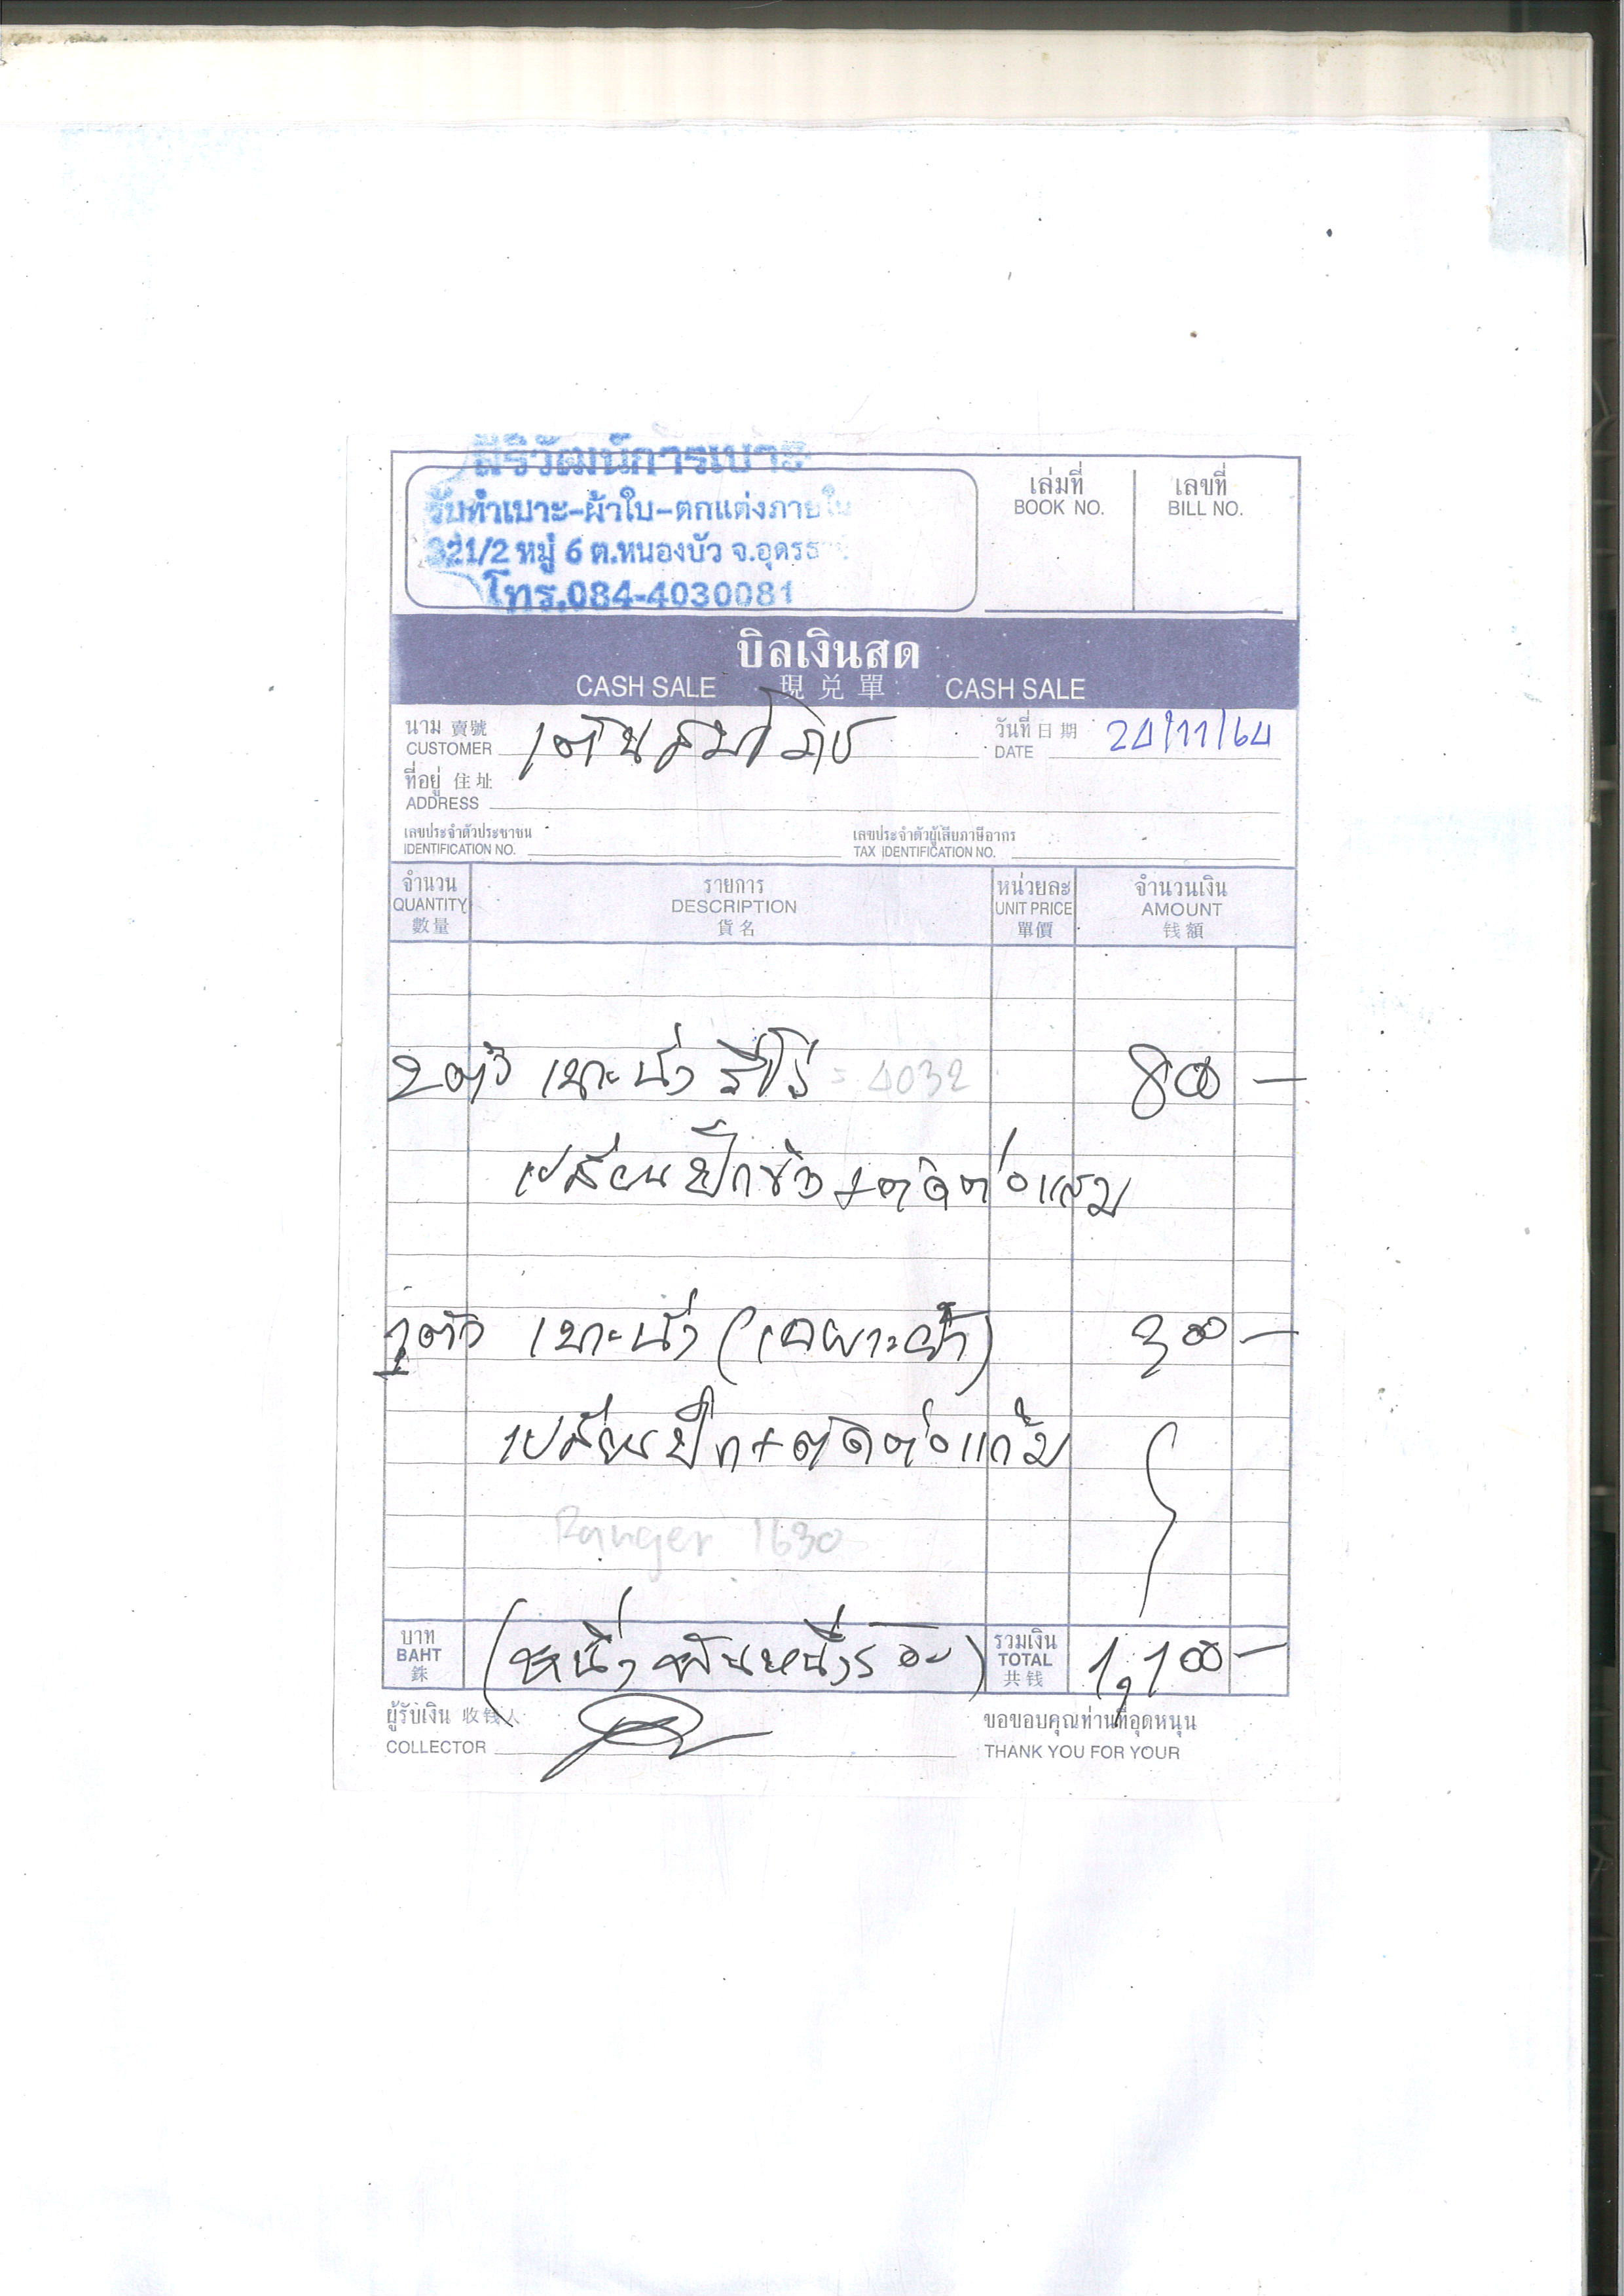 สิริวัฒน์การเบาะ
รับทำเบาะ-ผ้าใบ-ตกแต่งภายใน
321/2 หมู่ 6 ต.หนองบัว จ.อุดรธานี
โทร.084-4030081
เล่มที่ เลขที่
BOOK NO. BILL NO.
บิลเงินสด
CASH SALE 現兑單 CASH SALE
นาม 賣號 วันที่ 日期 24/11/64
CUSTOMER DATE
ที่อยู่ 住址
ADDRESS
เลขประจำตัวประชาชน เลขประจำตัวผู้เสียภาษีอากร
IDENTIFICATION NO. TAX IDENTIFICATION NO.
จำนวน รายการ หน่วยละ จำนวนเงิน
QUANTITY DESCRIPTION UNIT PRICE AMOUNT
數量 貨名 單價 钱額
2 ตัว เบาะนั่ง ฮีโร่ = 4032 800 -
เปลี่ยนปีก + ตัดต่อ
1 ตัว เบาะนั่ง (เฉพาะ 300 -
เปลี่ยนปีก + ตัดต่อแก้ม
Ranger 1630
บาท (หนึ่งพันหนึ่งร้อย) รวมเงิน 1,100 -
BAHT TOTAL
銖 共钱
ผู้รับเงิน 收钱人 ขอขอบคุณท่านที่อุดหนุน
COLLECTOR THANK YOU FOR YOUR